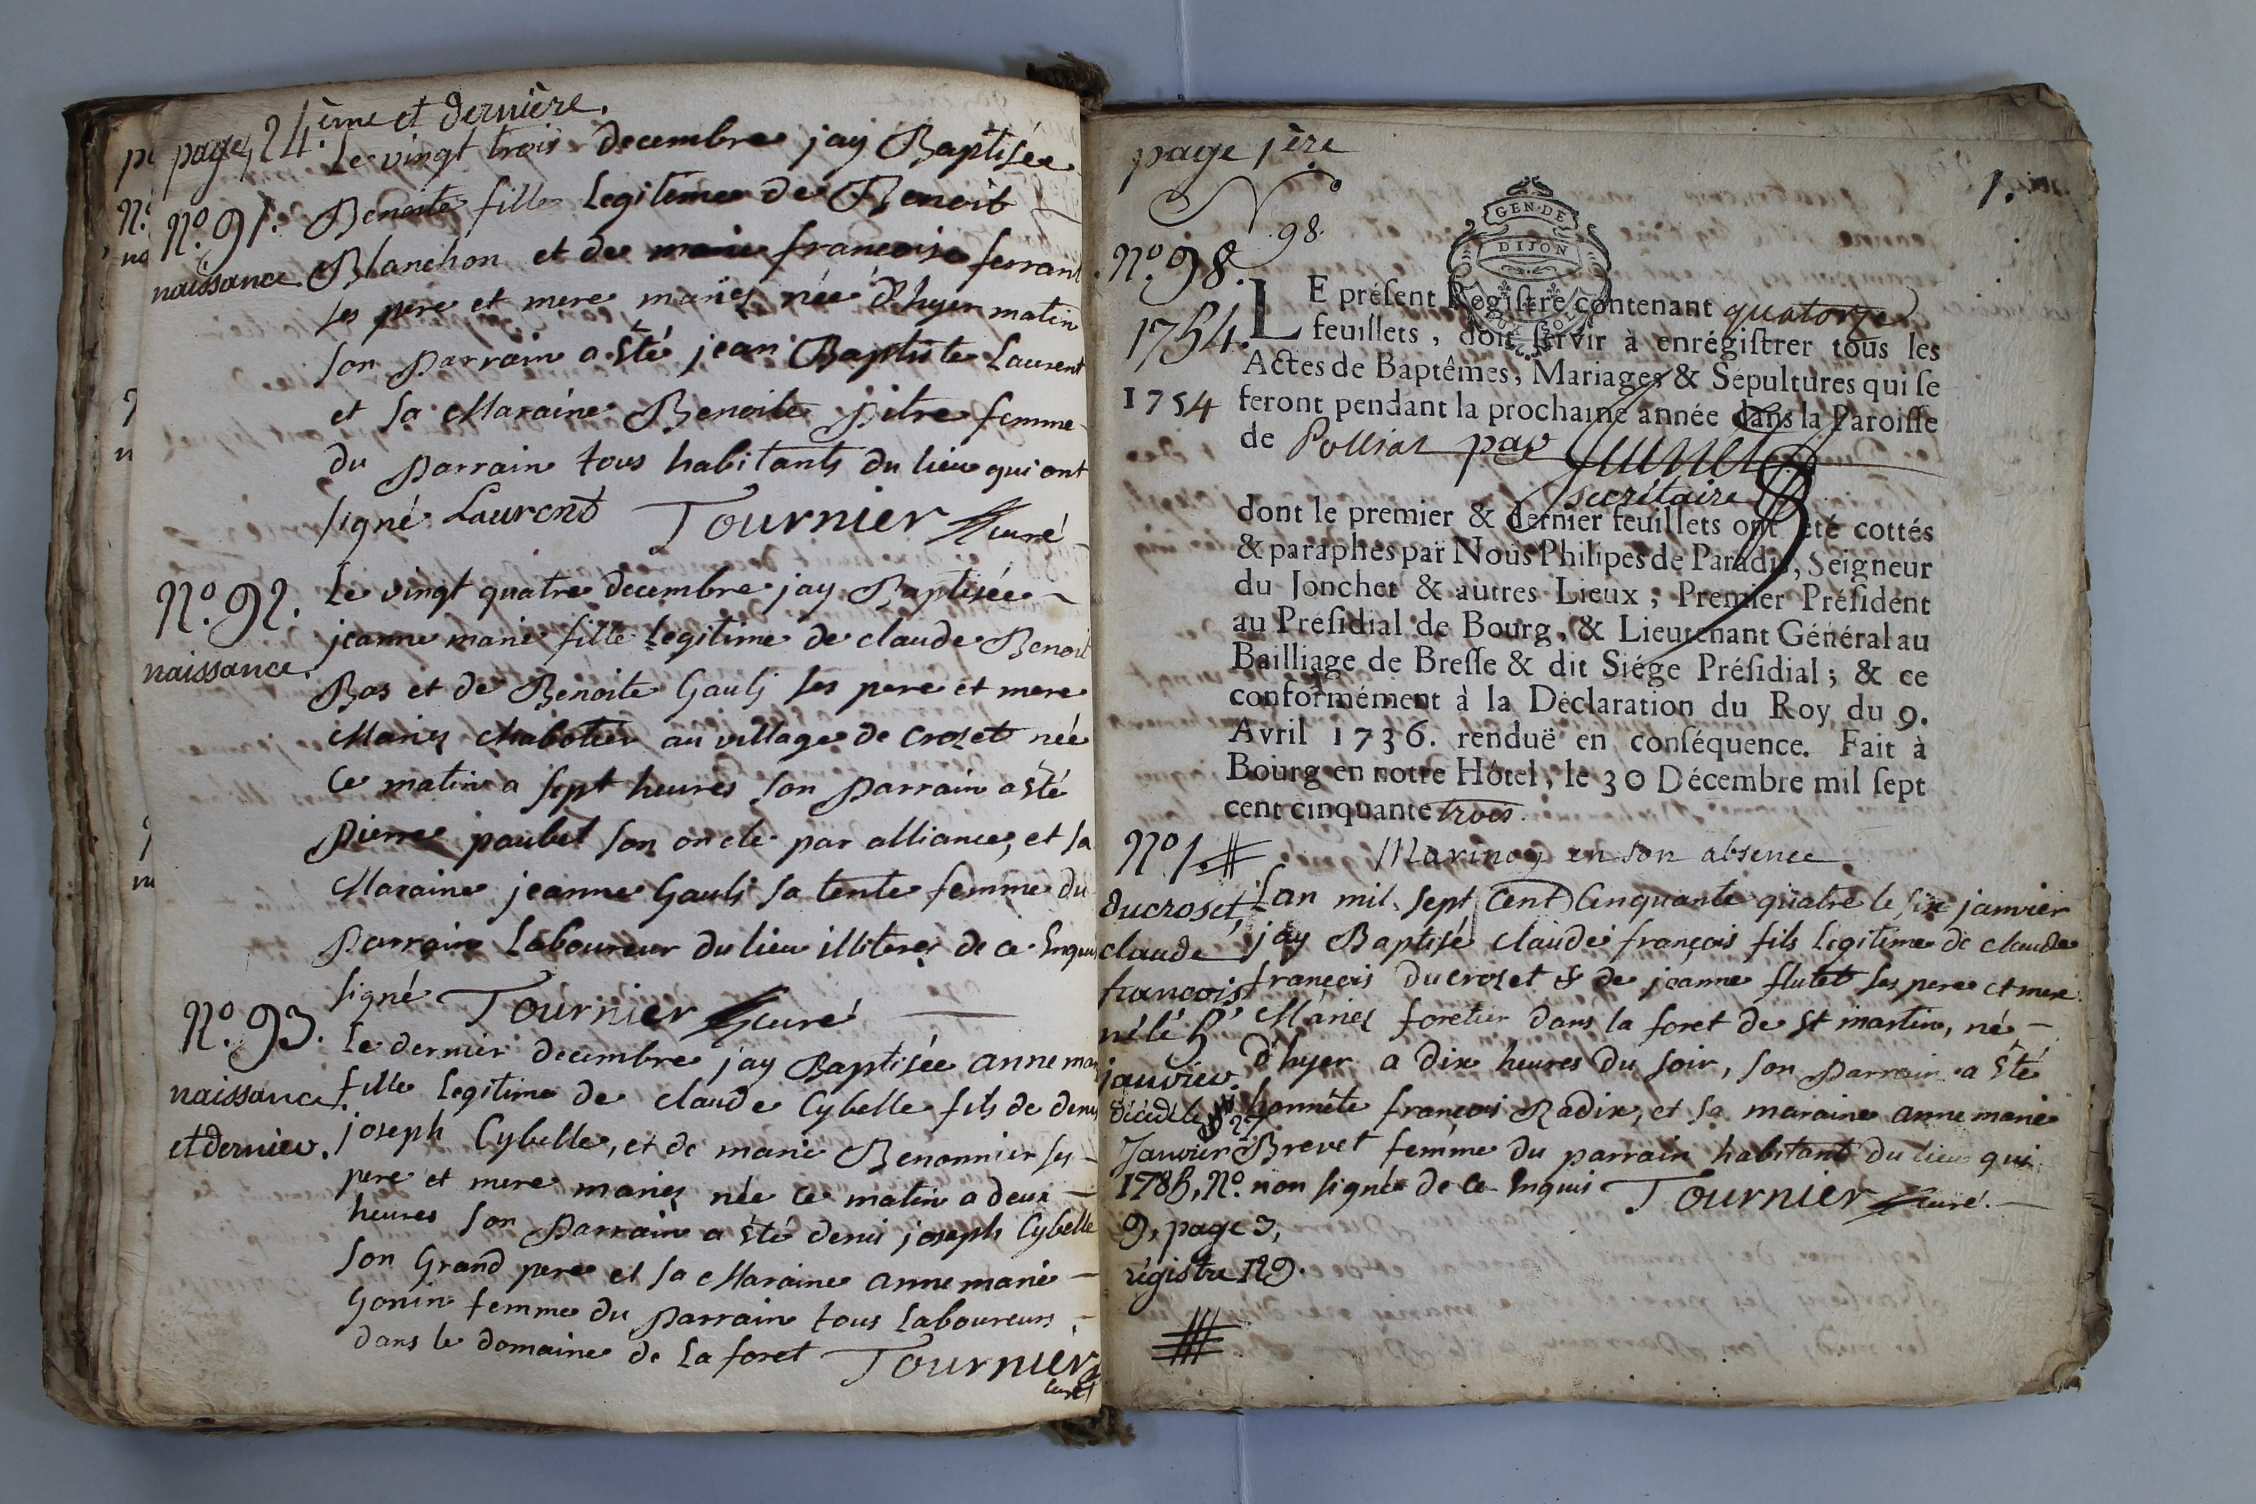 page 24.ème et dernière.
Le vingt trois decembre jay Baptisée
N.º 91. Benoite fille Legitime de Benoit
naissance. Blanchon et de marie francoise ferrant
ses pere et mere mariés née d'hyer matin
son parrain a Eté jean Baptiste Laurent
et sa Maraine Benoite pitre femme
du parrain tous habitants du lieu qui ont
signé Laurent Tournier curé
N.º 92. Le vingt quatre decembre jay Baptisée
jeanne marie fille Legitime de claude Benoit
naissance.
Bas et de Benoite Gauli ses pere et mere
Mariés Mabotier au village de Croset née
Ce matin a sept heures son parrain a Eté
pierre paubel son oncle par alliance, et sa
Maraine jeanne Gauli sa tente femme du
parrain Laboureur du lieu illiterés de ce Enquis
signé Tournier curé
N.º 93. Le dernier decembre jay Baptisée anne marie
naissance fille Legitime de claude Cybelle fils de denis
et dernier. joseph Cybelle, et de marie Benonnier ses
pere et mere mariés née ce matin a deux
heures son parrain a Eté denis joseph Cybelle
son Grand pere et sa Maraine anne marie
Gonin femme du parrain tous Laboureurs
dans le domaine de La foret Tournier
curé
page 1ère
1.
Nº
98.
N.º 98.
GEN·DE
DIJON
1754.
LE préſent Regiſtre contenant quatorze
feuillets, doit ſervir à enrégiſtrer tous les
Actes de Baptêmes, Mariages & Sépultures qui ſe
1754 feront pendant la prochaine année dans la Paroiſſe
de Polliat par
secrétaire
dont le premier & dernier feuillets ont été cottés
& paraphés par Nous Philipes de Paradis, Seigneur
du Jonchet & autres Lieux; Premier Préſident
au Préſidial de Bourg, & Lieutenant Général au
Bailliage de Breſſe & dit Siége Préſidial; & ce
conformément à la Déclaration du Roy du 9.
Avril 1736. renduë en conſéquence. Fait à
Bourg en notre Hôtel, le 30 Décembre mil ſept
cent cinquante trois.
Nº 1. en son absence
ducroset, Lan mil sept Cent Cinquante quatre le six janvier
claude jay Baptisé claude françois fils Legitime de claude
françois françois Ducroset & de jeanne flutet ses pere et mere
né le 5 Mariés foretier dans la foret de St martin, né
janvier. d'hyer a dix heures du soir, son parrain a Eté
décédé le 27 honnête francois Radix, et sa maraine anne marie
Janvier Brevet femme du parrain habitant du lieu qui
1785, N.º non signés de Ce Enquis Tournier curé.
9, page 3,
régistre 129.